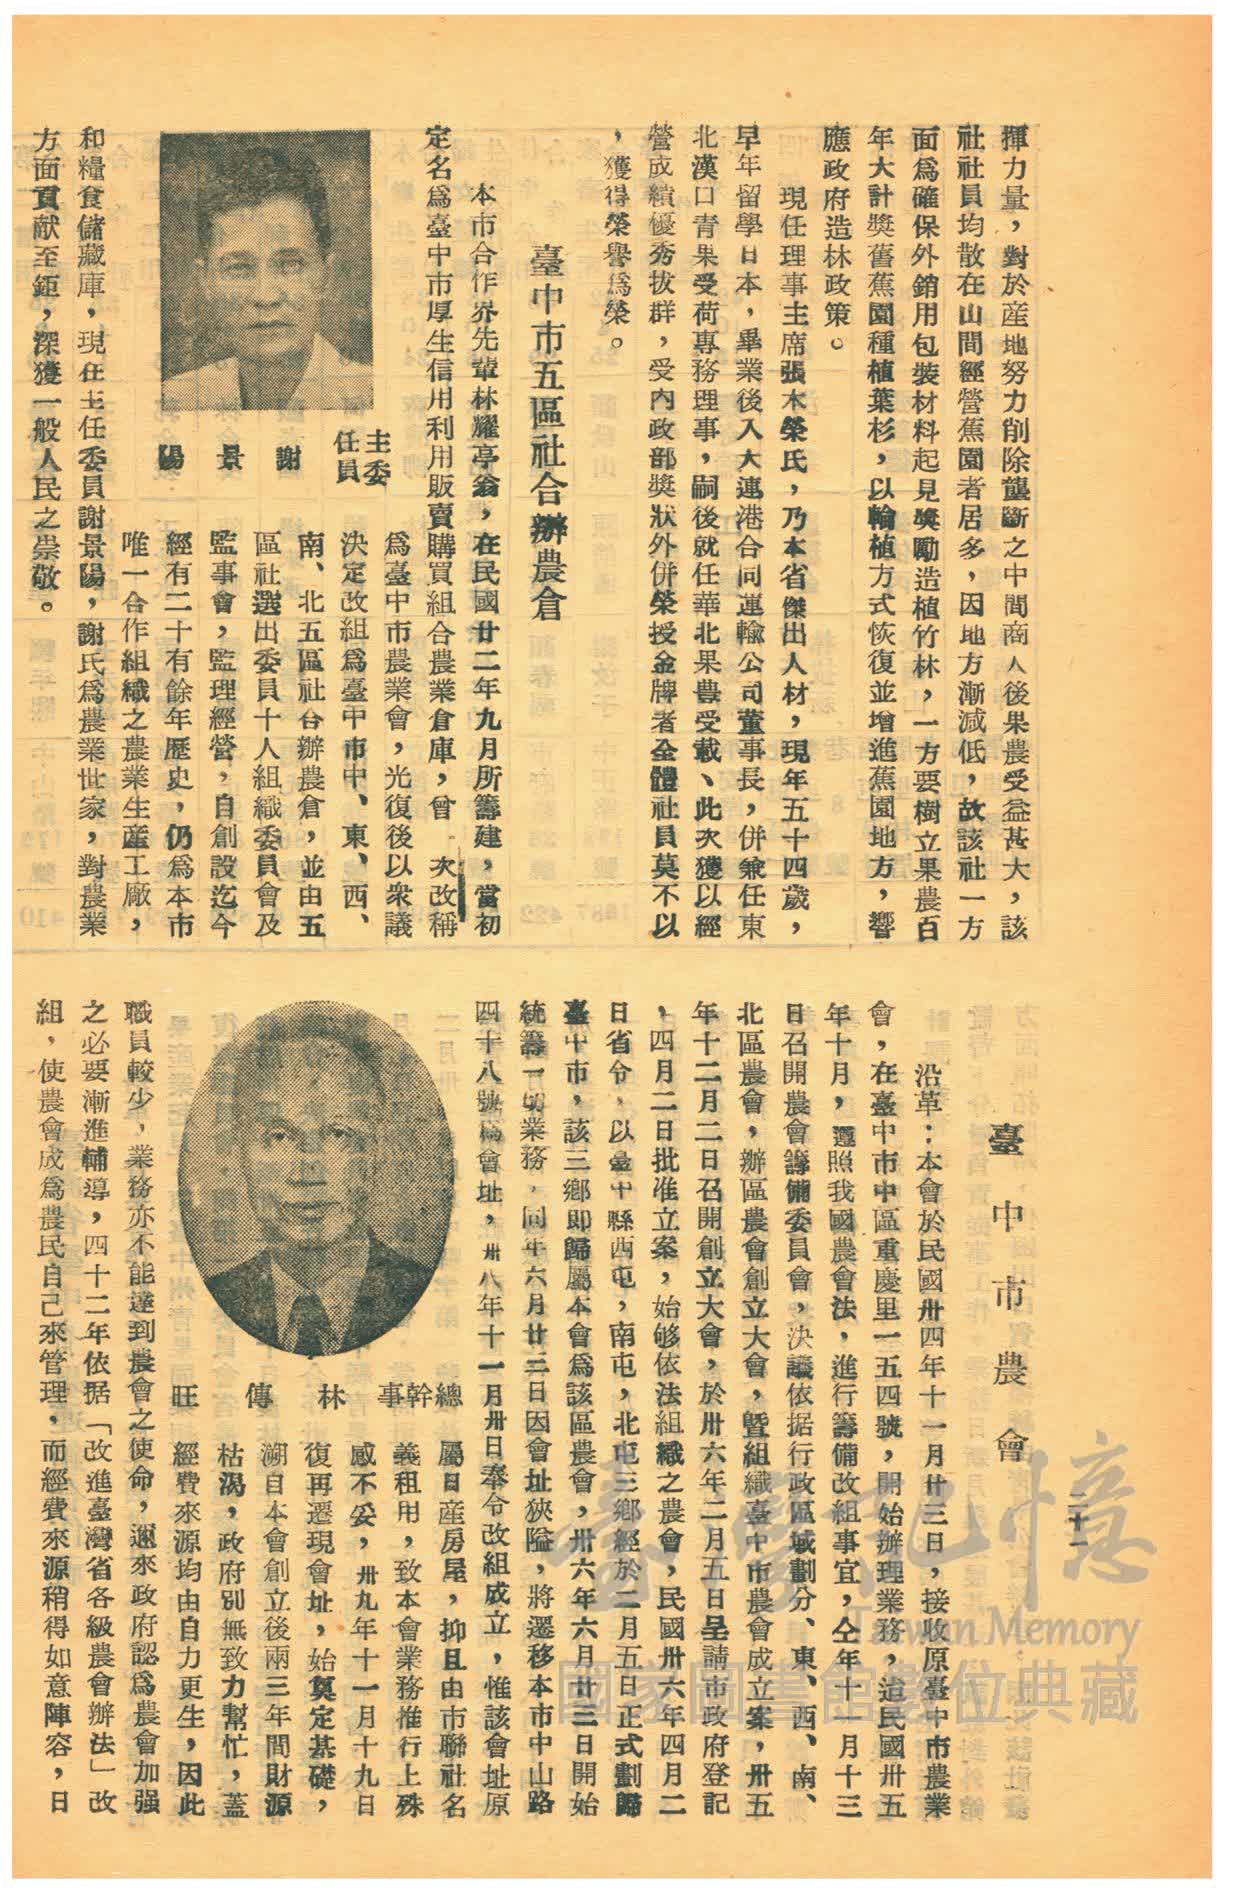 揮力量，對於産地努力削除壟斷之中間商人後果農受益甚大，該
社社員均散在山間經營蕉園者居多，因地方漸減低，故該社一方
面爲確保外銷用包裝材料起見獎勵造植竹林，一方要樹立果農百
年大計獎舊蕉園種植葉杉，以輪植方式恢復並增進蕉園地方，響
應政府造林政策。
現任理事主席張木榮氏，乃本省傑出人材，現年五十四歲，
早年留學日本，畢業後入大連港合同運輸公司董事長，併兼任東
北漢口青果受荷專務理事，嗣後就任華北果豊受載、此次獲以經
營成績優秀拔群，受內政部獎狀外併榮授金牌者全體社員莫不以
，獲得榮譽爲榮。
臺中市五區社合辦農倉
本市合作界先輩林耀亭翁，在民國廿二年九月所籌建，當初
定名爲臺中市厚生信用利用販賣購買組合農業倉庫，曾 次改稱
爲臺中市農業會，光復後以衆議
決定改組爲臺中市中、東、西、
南、北五區社合辦農倉，並由五
區社選出委員十人組織委員會及
監事會，監理經營，自創設迄今
經有二十有餘年歷史，仍爲本市
唯一合作組織之農業生産工廠，
主任委員
謝景陽
和糧食儲藏庫，現任主任委員謝景陽，謝氏爲農業世家，對農業
方面貢献至鉅，深獲一般人民之崇敬。
二十一
臺中市農會
沿革：本會於民國卅四年十一月廿三日，接收原臺中市農業
會，在臺中市中區重慶里一五四號，開始辦理業務，迨民國卅五
年十月，遵照我國農會法，進行籌備改組事宜，仝年十一月十三
日召開農會籌備委員會，決議依据行政區域劃分、東、西、南、
北區農會，辦區農會創立大會，曁組織臺中市農會成立案，卅五
年十二月二日召開創立大會，於卅六年二月五日呈請市政府登記
，四月二日批准立案，始够依法組織之農會，民國卅六年四月二
日省令，以臺中縣西屯，南屯，北屯三鄉經於二月五日正式劃歸
臺中市，該三鄉即歸屬本會爲該區農會，卅六年六月廿三日開始
統籌一切業務，同年六月廿三日因會址狹隘，將遷移本市中山路
四十八號爲會址，卅八年十一月卅日奉令改組成立，惟該會址原
屬日産房屋，抑且由市聯社名
義租用，致本會業務推行上殊
感不妥，卅九年十一月十九日
復再遷現會址，始奠定基礎，
溯自本會創立後兩三年間財源
枯渴，政府別無致力幫忙，蓋
經費來源均由自力更生，因此
總幹事 林傳旺
職員較少，業務亦不能達到農會之使命，邇來政府認爲農會加强
之必要漸進輔導，四十二年依据「改進臺灣省各級農會辦法」改
組，使農會成爲農民自己來管理，而經費來源稍得如意陣容，日
臺灣記憶
Taiwan Memory
國家圖書館數位典藏